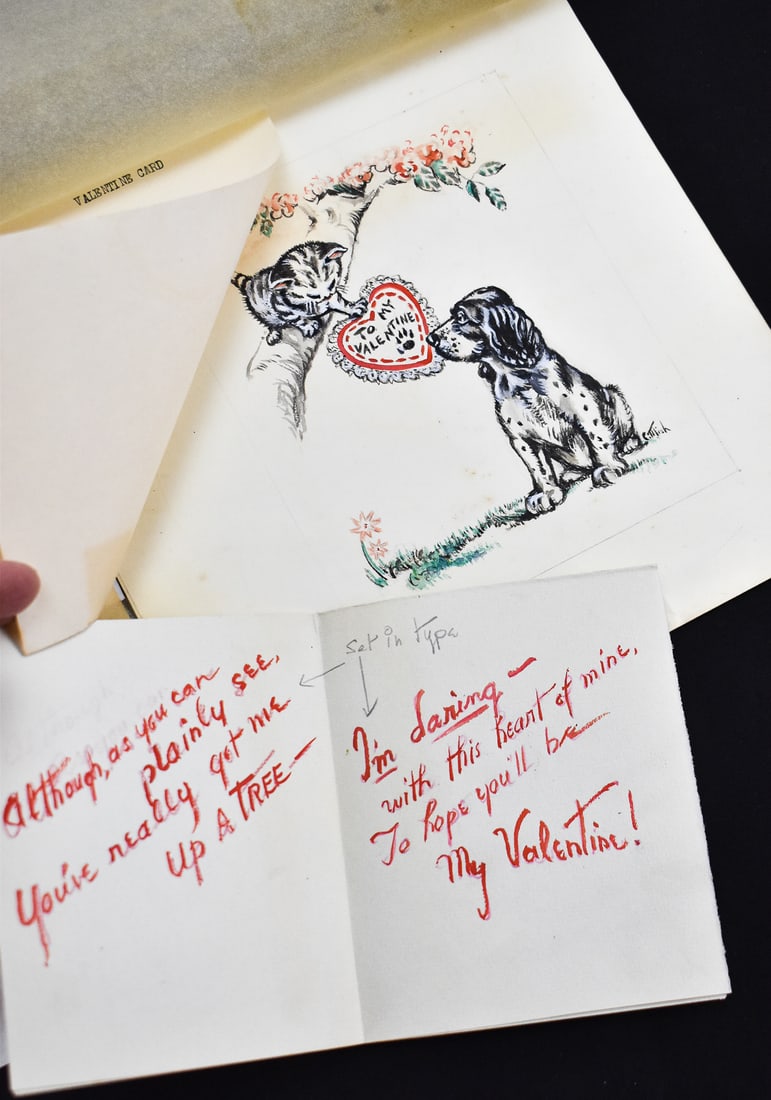 VALENTINE CARD
TO MY
VALENTINE
set in type
Although, as you can
plainly see,
You've really got me
up A TREE—
I'm daring—
with this heart of mine,
To hope you'll be
My Valentine!